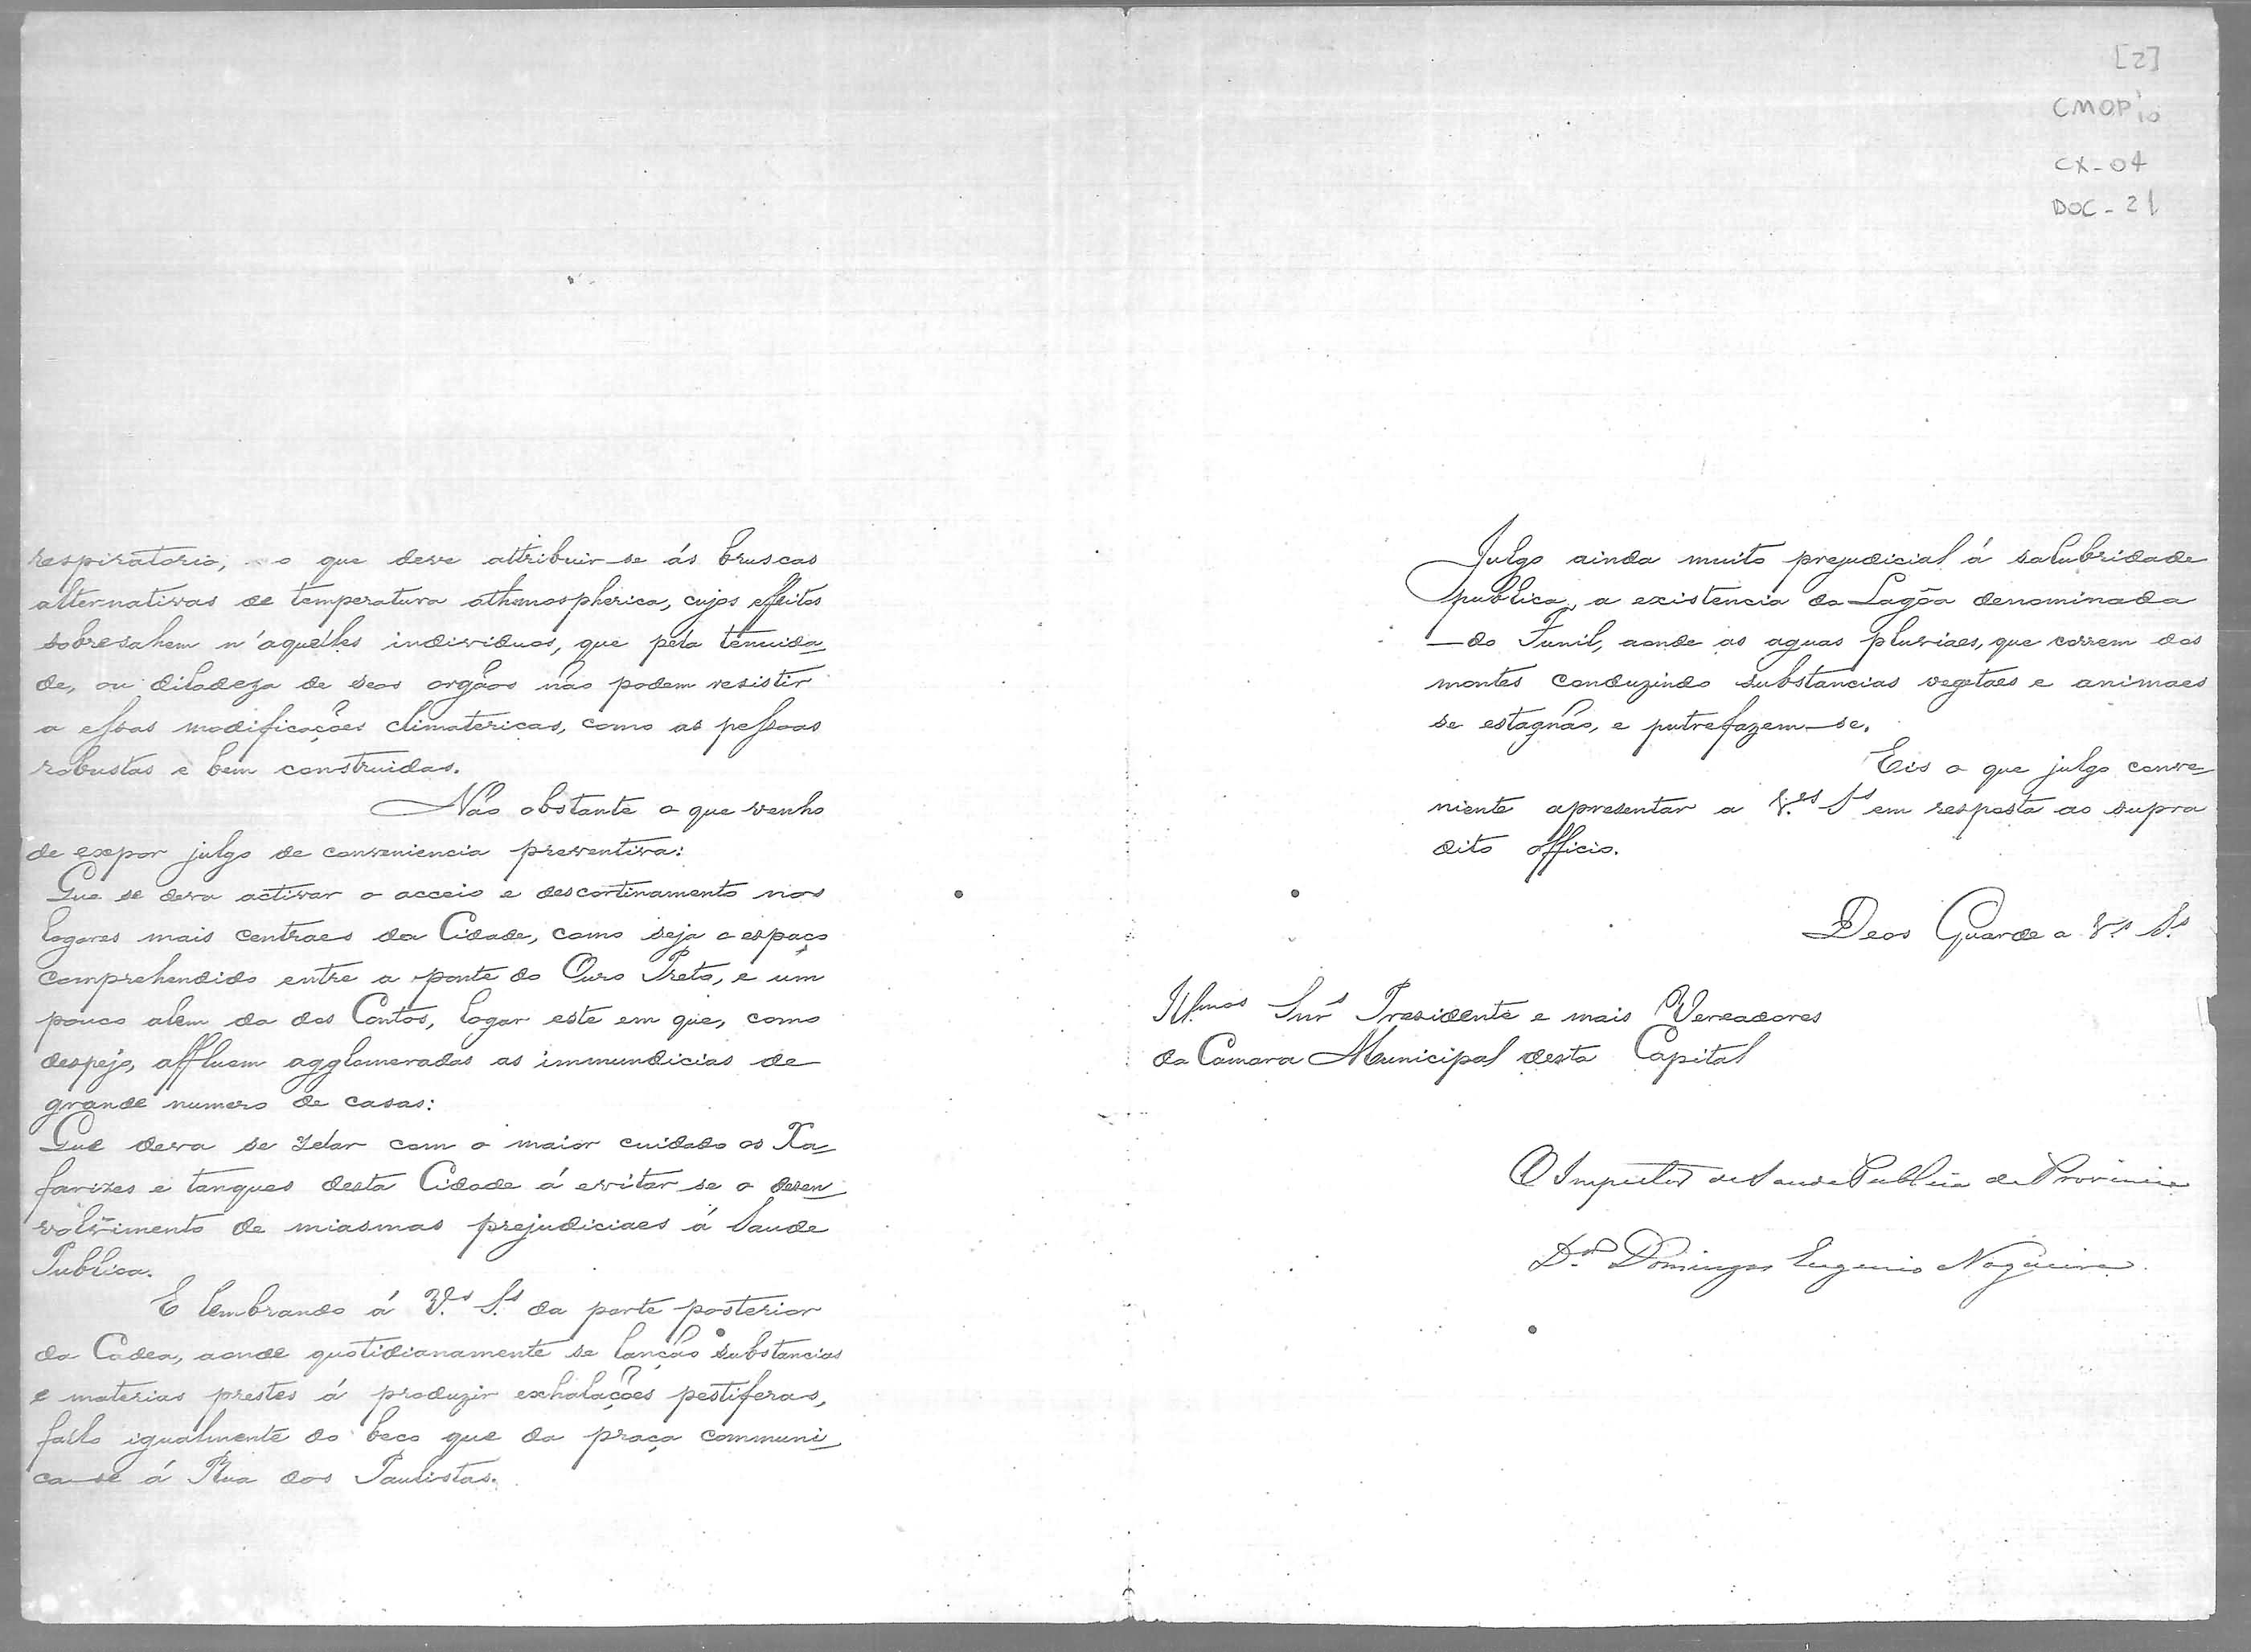 respiratorio, o que deve attribuir-se ás bruscas
alternativas de temperatura athmospherica, cujos effeitos
sobresahem n'aquelles individuos, que pela tenuida
de, ou diladeza de seos orgãos não podem resistir
a essas modificações climatericas, como as pessoas
robustas e bem construidas.
Não obstante o que venho
de expor julgo de conveniencia preventiva:
Que se deva activar o acceio e descortinamento nos
logares mais centraes da Cidade, como seja o espaço
comprehendido entre a ponte do Ouro Preto, e um
pouco alem da dos Contos, logar este em que, como
despejo, affluem agglomeradas as immundicias de
grande numero de casas:
Que deva se zelar com o maior cuidado os Xa-
farizes e tanques desta Cidade á evitar-se o desen-
volvimento de miasmas prejudiciaes á Saude
Publica.
E lembrando á V.ˢ S.ˢ da parte posterior
da Cadea, aonde quotidianamente se lanção substancias
e materias prestes á produzir exhalações pestiferas,
fallo igualmente do beco que da praça communi-
ca-se á Rua dos Paulistas.
[2]
CMOP
CX-04
DOC-21
Julgo ainda muito prejudicial á salubridade
publica, a existencia da Lagôa denominada
—do Funil, aonde as aguas pluviaes, que correm dos
montes conduzindo substancias vegetaes e animaes
se estagnão, e putrefazem-se.
Eis o que julgo conve-
niente apresentar a V.ˢ S.ˢ em resposta ao supra
dito officio.
Deos Guarde a V.ˢ S.ˢ
Ill.mos Snr.ˢ Presidente e mais Vereadores
da Camara Municipal desta Capital
O Inspector de Saude Publica da Provincia
D.ʳ Domingos Eugenio Nogueira.